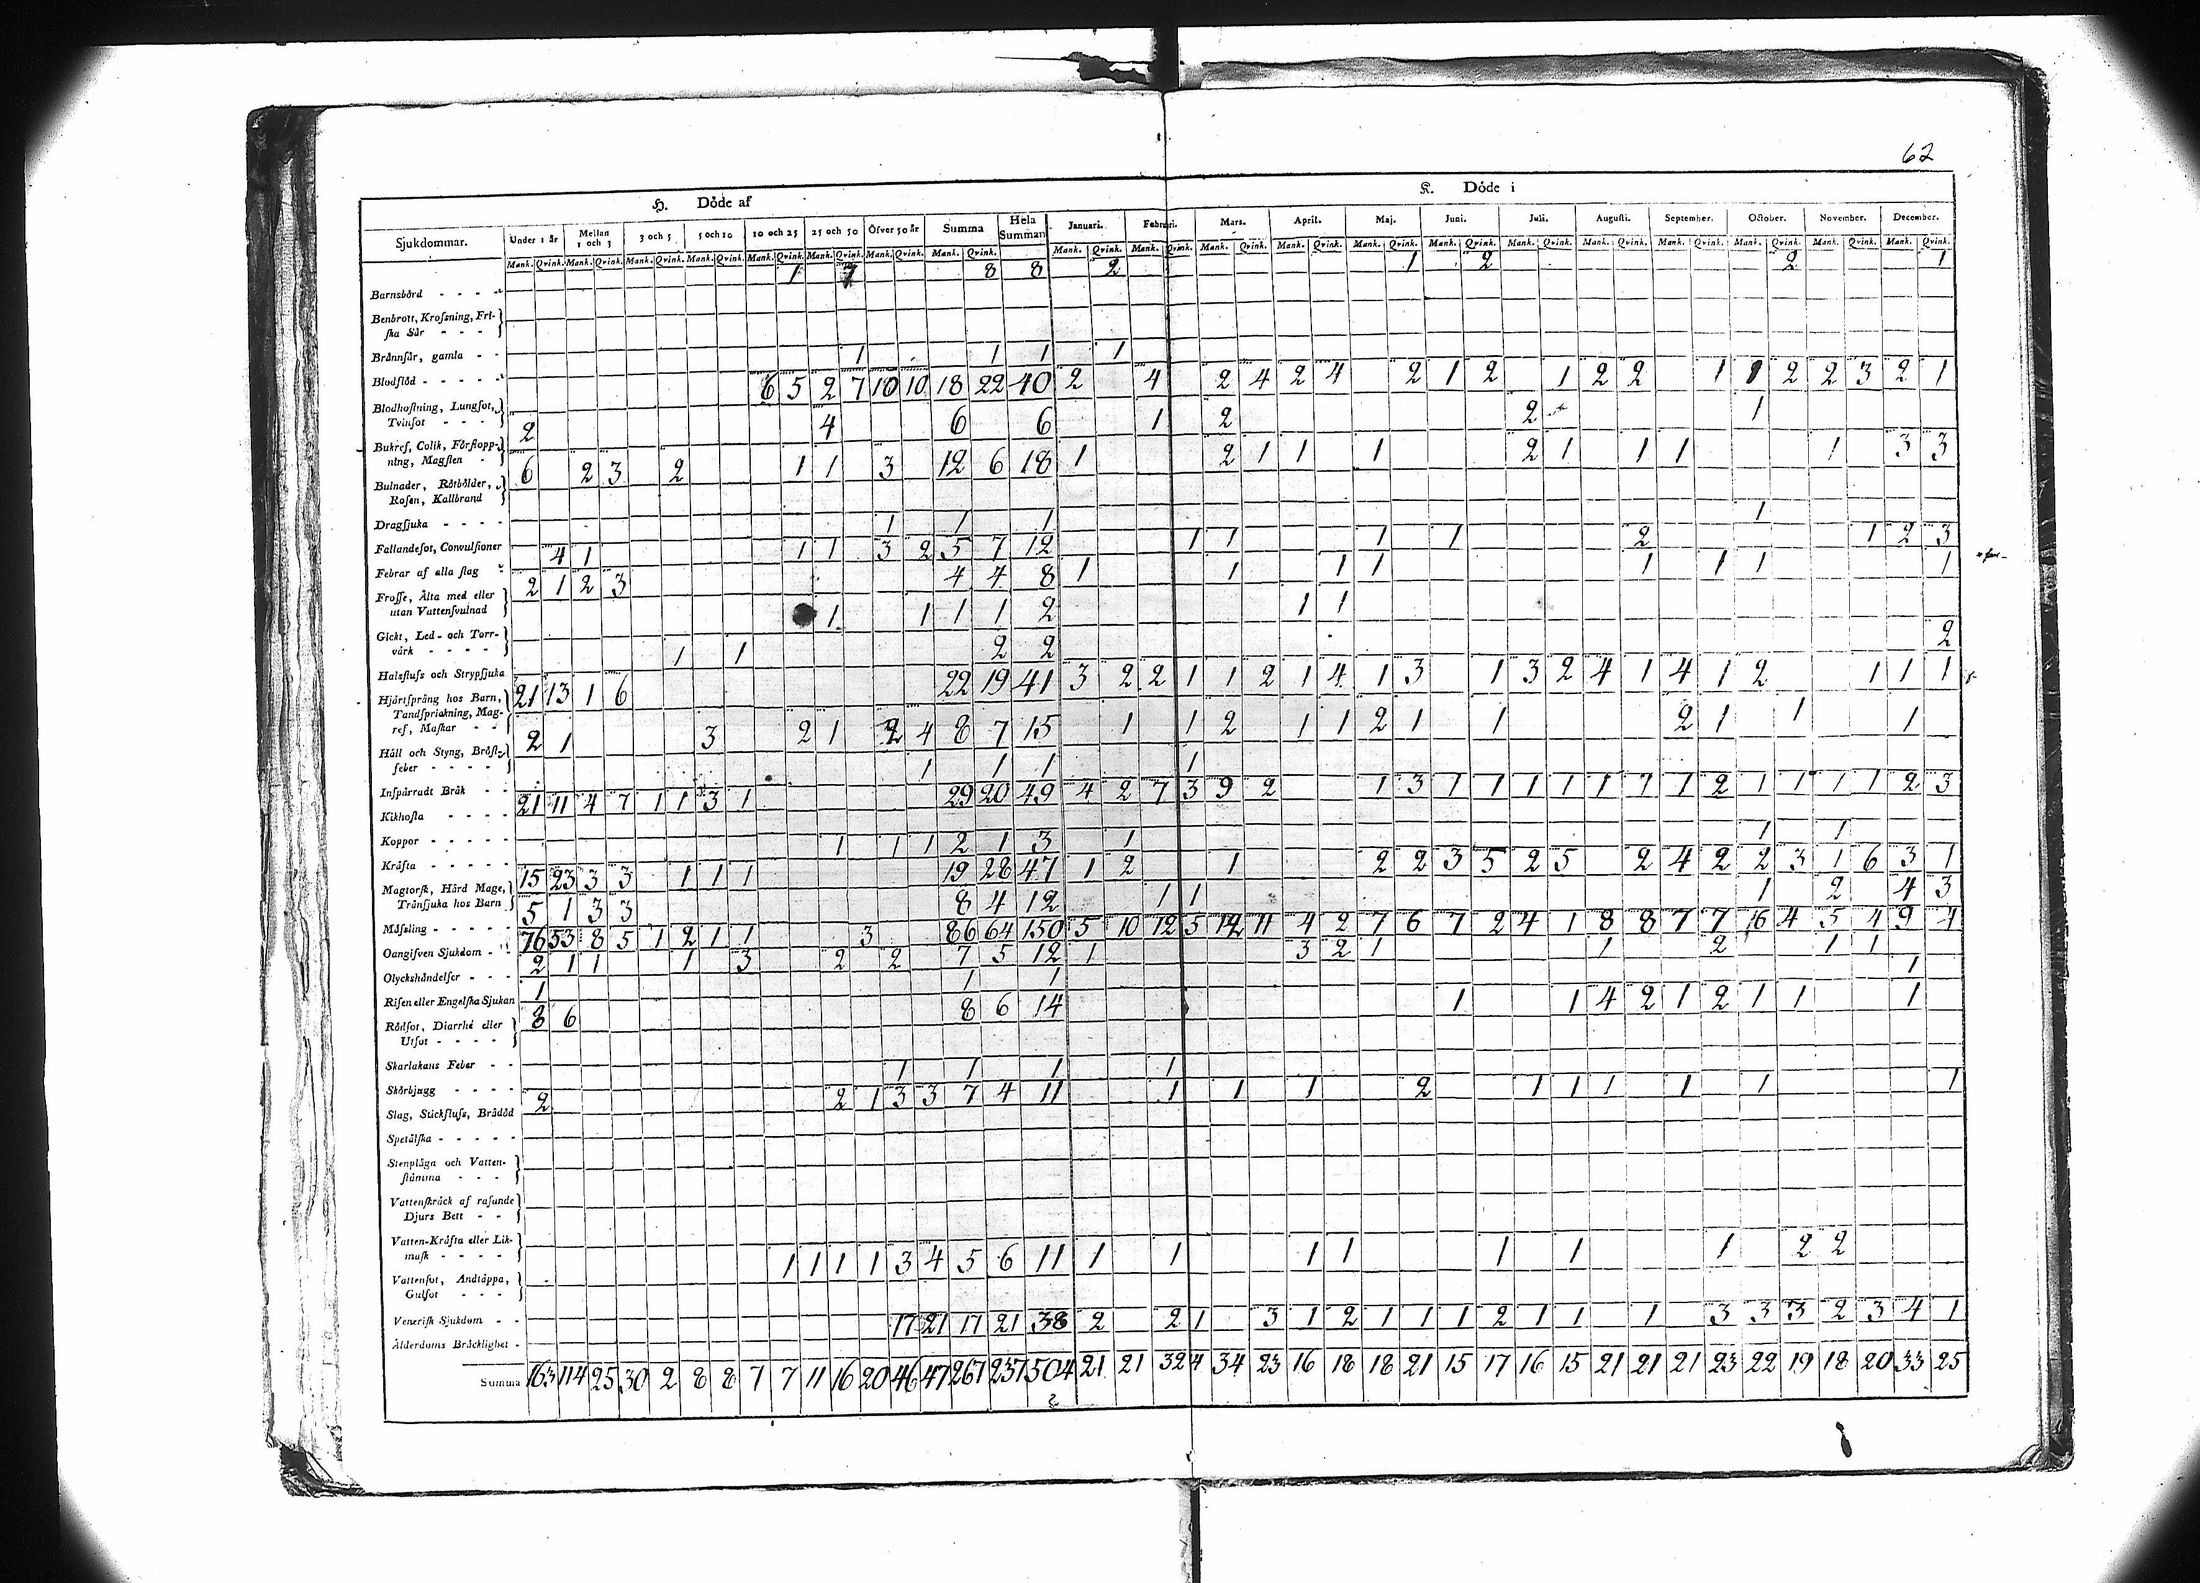 62
H. Döde af K. Döde i
Sjukdommar. Under 1 år Mellan 1 och 3 3 och 5 5 och 10 10 och 25 25 och 50 Öfver 50 år Summa Hela Summan Januari. Februari. Mars. April. Maj. Juni. Juli. Augusti. September. October. November. December.
Mank. Qvink. Mank. Qvink. Mank. Qvink. Mank. Qvink. Mank. Qvink. Mank. Qvink. Mank. Qvink. Mank. Qvink. Mank. Qvink. Mank. Qvink. Mank. Qvink. Mank. Qvink. Mank. Qvink. Mank. Qvink. Mank. Qvink. Mank. Qvink. Mank. Qvink. Mank. Qvink. Mank. Qvink. Mank. Qvink.
Barnsbörd - - - - 1 7 8 8 2 1 2 2 1
Benbrott, Krossning, Fri-
ska Sår - - -
Brännsår, gamla - - 1 1 1 1
Blodflöd - - - - - 6 5 2 7 10 10 18 22 40 2 4 2 4 2 4 2 1 2 1 2 2 1 1 2 2 3 2 1
Blodhostning, Lungsot,
Tvinsot - - - 2 4 6 6 1 2 2 1
Bukref, Colik, Förstopp-
ning, Magsten - 6 2 3 2 1 1 3 12 6 18 1 2 1 1 1 2 1 1 1 1 3 3
Bulnader, Rötbölder,
Rosen, Kallbrand
Dragsjuka - - - - 1 1 1 1
Fallandesot, Convulsioner 4 1 1 1 3 2 5 7 12 1 1 1 1 2 1 2 3
Febrar af alla slag 2 1 2 3 4 4 8 1 1 1 1 1 1 1 1
Frosse, Älta med eller
utan Vattensvulnad 1 1 1 1 2 1 1
Gickt, Led- och Torr-
värk - - - - 1 1 2 2 2
Halsfluss och Strypsjuka 21 13 1 6 22 19 41 3 2 2 1 1 2 1 4 1 3 1 3 2 4 1 4 1 2 1 1 1
Hjärtsprång hos Barn,
Tandsprickning, Mag-
ref, Maskar - - 2 1 3 2 1 2 4 8 7 15 1 1 2 1 1 2 1 1 2 1 1 1
Håll och Styng, Bröst-
feber - - - - 1 1 1 1
Inspärradt Bråk - - 21 11 4 7 1 1 3 1 29 20 49 4 2 7 3 9 2 1 3 1 1 1 1 1 1 1 2 1 1 1 1 2 3
Kikhosta - - - -
Koppor - - - - - 1 1 1 2 1 3 1 1 1
Kräfta - - - - - 15 23 3 3 1 1 1 19 28 47 1 2 1 2 2 3 5 2 5 2 4 2 2 3 1 6 3 1
Magtorsk, Hård Mage,
Trånsjuka hos Barn 5 1 3 3 8 4 12 1 1 1 2 4 3
Mässling - - - - - 76 53 8 5 1 2 1 1 3 86 64 150 5 10 12 5 12 11 4 2 7 6 7 2 4 1 8 8 7 7 16 4 5 4 9 4
Oangifven Sjukdom - 2 1 1 1 3 2 2 7 5 12 1 3 2 1 1 2 1 1
Olyckshändelser - - - 1 1 1 1
Risen eller Engelska Sjukan 8 6 8 6 14 1 1 4 2 1 2 1 1 1
Rödsot, Diarrhé eller
Utsot - - - -
Skarlakans Feber - - 1 1 1 1
Skörbjugg - - - - 2 2 1 3 3 7 4 11 1 1 1 2 1 1 1 1 1 1
Slag, Stickfluss, Brådöd
Spetälska - - - - -
Stenplåga och Vatten-
stämma - - -
Vattenskräck af rasande
Djurs Bett - -
Vatten-Kräfta eller Lik-
mask - - - - 1 1 1 1 3 4 5 6 11 1 1 1 1 1 1 1 2 2
Vattensot, Andtäppa,
Gulsot - - -
Venerisk Sjukdom - - 17 21 17 21 38 2 2 1 3 1 2 1 1 1 2 1 1 1 3 3 3 2 3 4 1
Ålderdoms Bräcklighet -
Summa 163 114 25 30 2 8 8 7 7 11 16 20 46 47 267 237 504 21 21 32 24 34 23 16 18 18 21 15 17 16 15 21 21 21 23 22 19 18 20 33 25